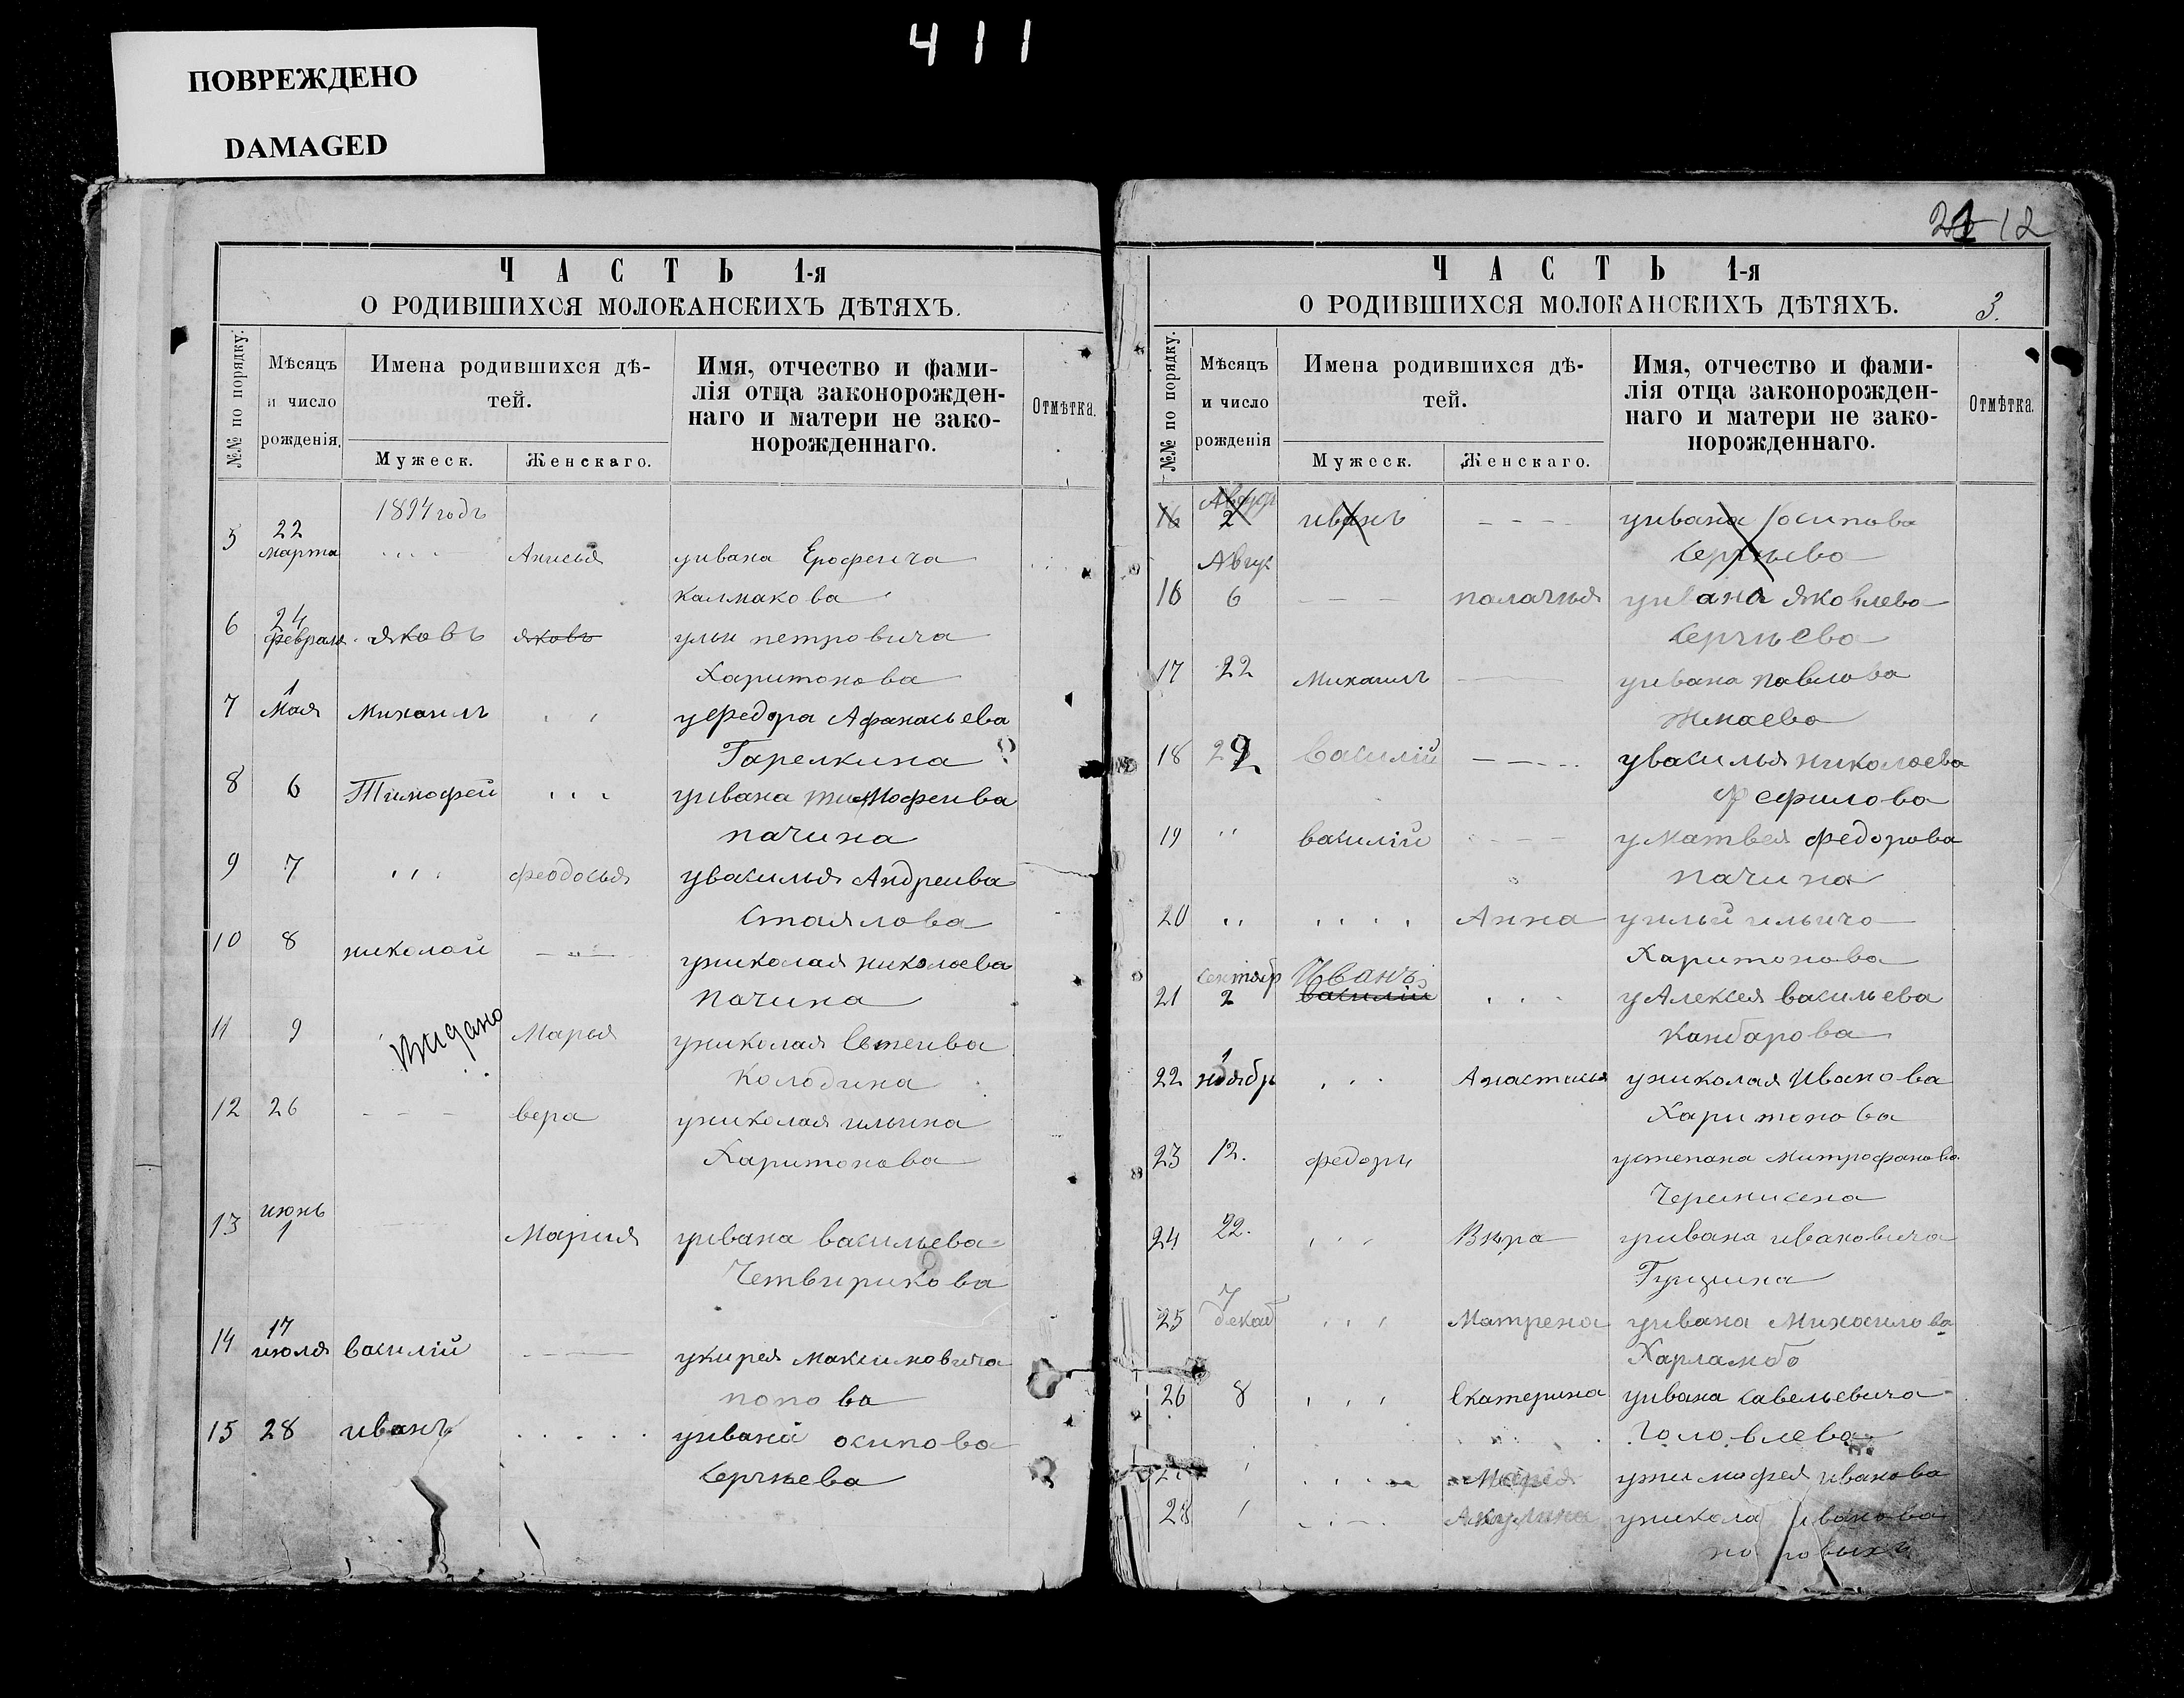 ПОВРЕЖДЕНО
DAMAGED
411
ЧАСТЬ 1-я
О РОДИВШИХСЯ МОЛОКАНСКИХЪ ДѢТЯХЪ.
№№ по порядку.
Мѣсяцъ и число рожденія.
Имена родившихся дѣтей.
Мужеск.
Женскаго.
Имя, отчество и фамилія отца законорожденнаго и матери не законорожденнаго.
Отмѣтка.
1894 годъ
5 22 марта Анисья уивана Ерофеича
Калмакова
6 24 февраля яковъ яковъ ульи петровича
Харитонова
7 1 Мая Михаилъ уФедора Афанасьева
Гарелкина
8 6 Тимофей уивана тимофеива
пачина
9 7 феодосья увасилья Андреива
Стаялова
10 8 николай униколая николаева
пачина
11 9 Марья униколая
Колодина
12 26 вера униколая ильина
Харитонова
13 июнь 1 Мария уивана васильева
Четвирикова
14 17 июля василій укирея максимовича
попова
15 28 иванъ уивана осипова
Сергѣева
12
ЧАСТЬ 1-я
О РОДИВШИХСЯ МОЛОКАНСКИХЪ ДѢТЯХЪ.
3.
№№ по порядку.
Мѣсяцъ и число рожденія
Имена родившихся дѣтей.
Мужеск.
Женскаго.
Имя, отчество и фамилія отца законорожденнаго и матери не законорожденнаго.
Отмѣтка.
16 2 иванъ уивана осипова
Сергѣева
16 Авгус 6 палагия уивана яковлева
Сергѣева
17 22 Михаилъ уивана павлова
18 василій увасилья николаева
Фефилова
19 " василій уМатвея федорова
пачина
20 " Анна уильи ильича
Харитонова
21 сентябр 2 Иванъ василій уАлексея васильева
Канбарова
22 1 ноябр Анастасья униколая Иванова
Харитонова
23 12. федоръ устепана Митрофанова
24 22. Вѣра уивана ивановича
Гущина
25 7 декаб Матрена уивана Михаилова
Харламбо
26 8 екатерина уивана савельевича
Головлева
Марея утимофея иванова
28 Акулина уникола иванова